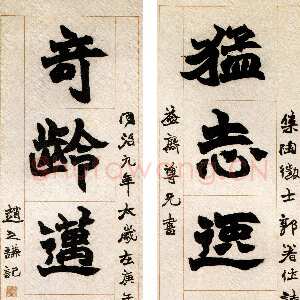 集陶徵士郭
猛志逸
益齋尊兄書
同治九年太歲在庚午
奇齡邁
趙之謙記